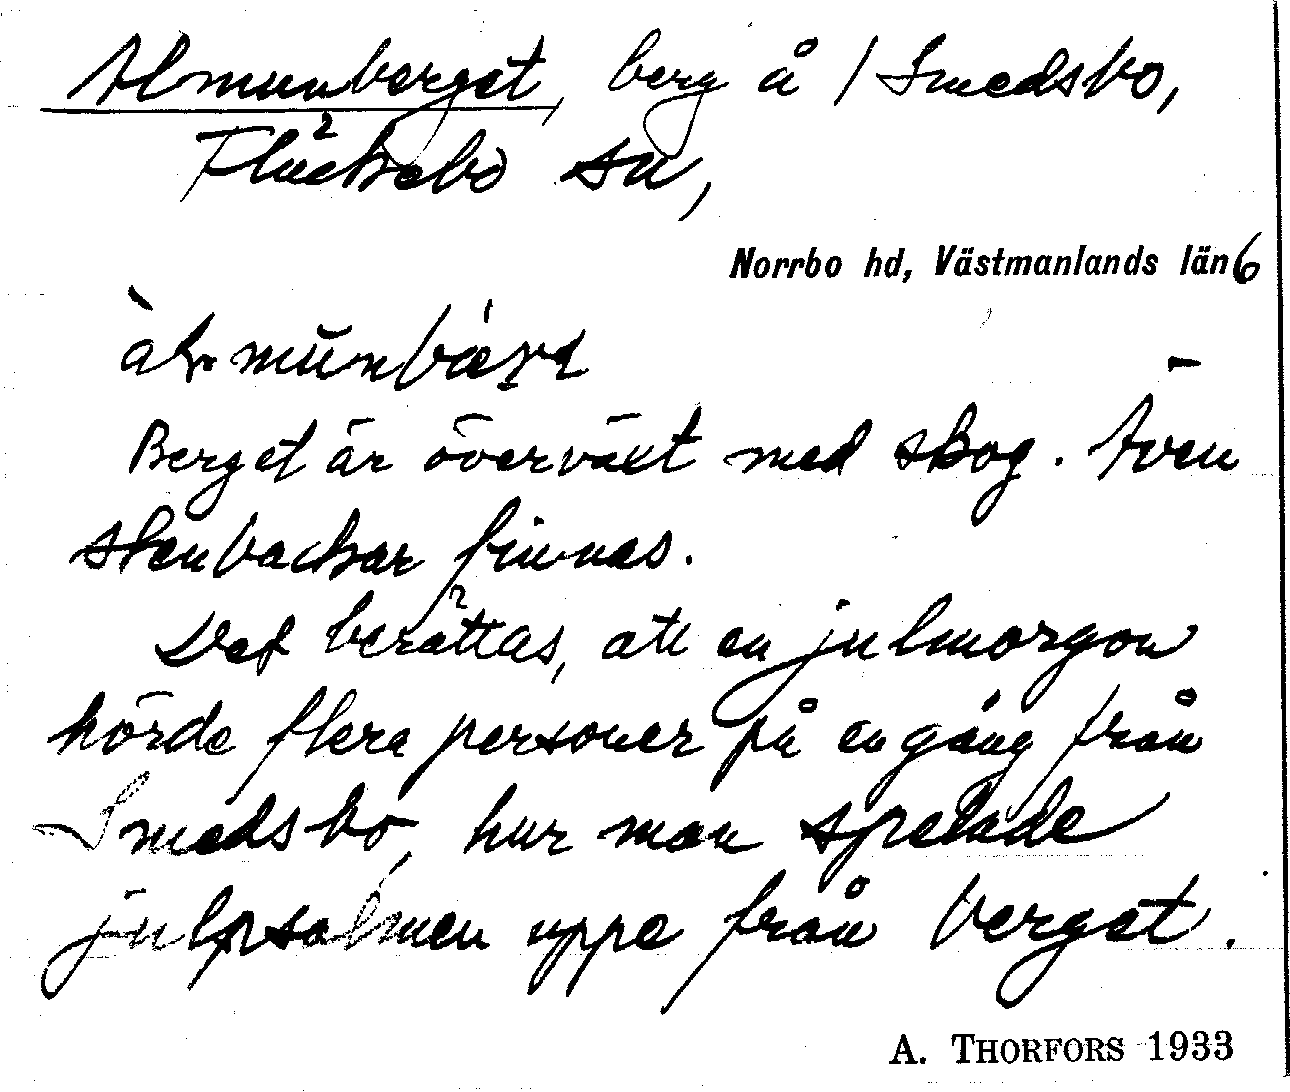 Almunberget, berg å / Smedsbo,
Fläckebo sn,
Norrbo hd, Västmanlands län 6
Berget är överväxt med skog. Även
stenbackar finnas.
Det berättas, att en julmorgon
hörde flera personer på en gång från
Smedsbo, hur man spelade
julpsalmen uppe från berget.
A. THORFORS 1933